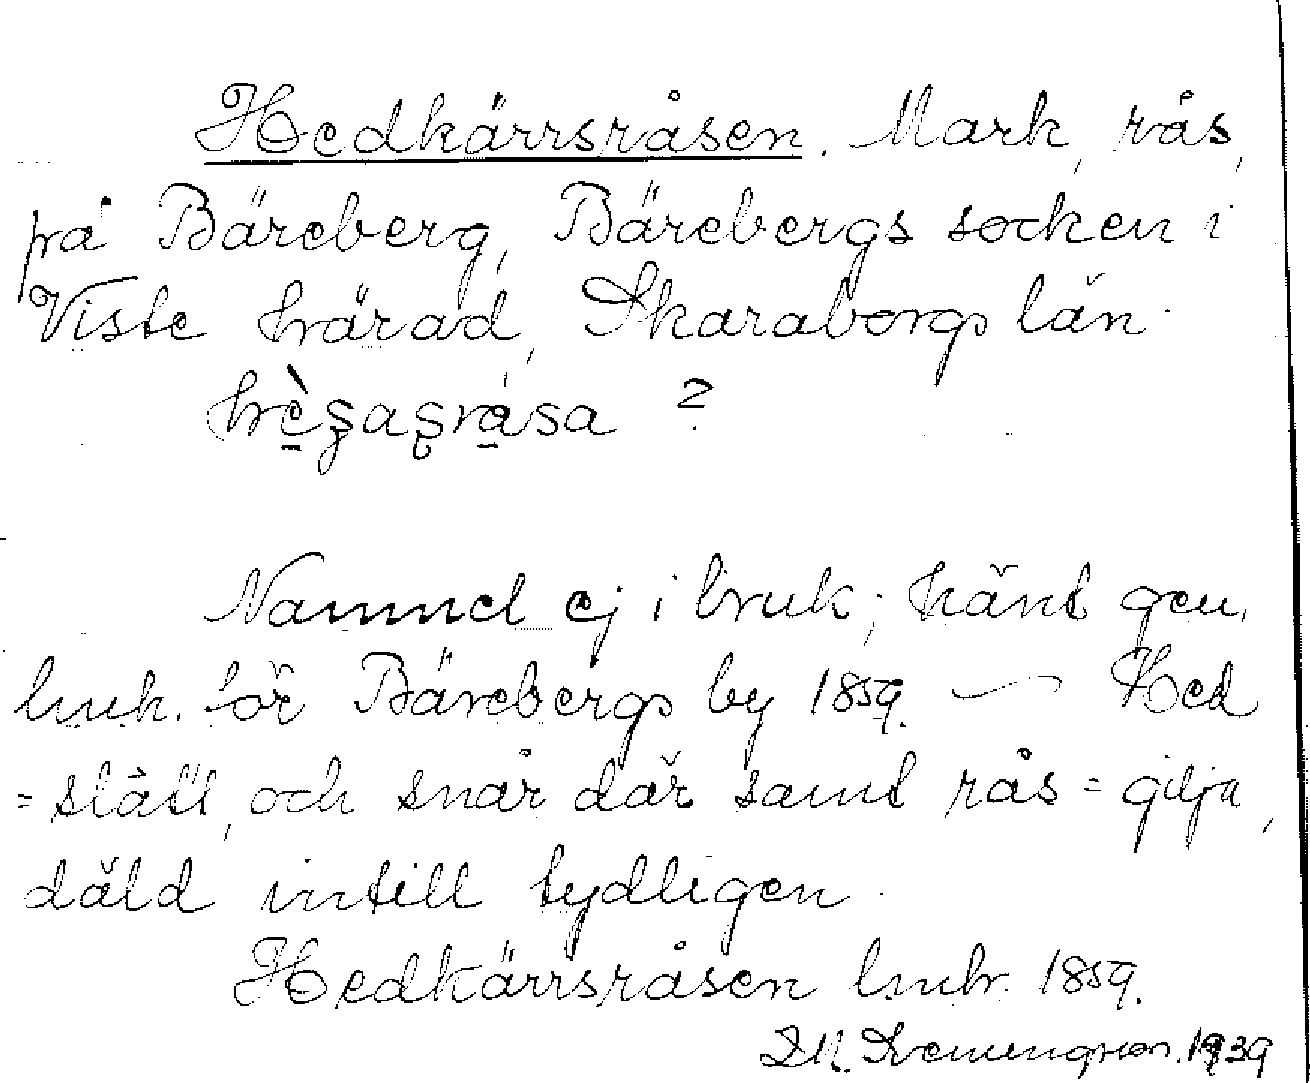 Hedkärrsråsen. Mark, rås,
på Bäreberg, Bärebergs socken i
Viste härad, Skaraborgs län.
?
Namnet ej i bruk; känt gen.
lmh. för Bärebergs by 1859. — Hed
= slätt, och snår där samt rås = gilja,
däld intill tydligen.
Hedkärrsråsen lmh. 1859.
1939